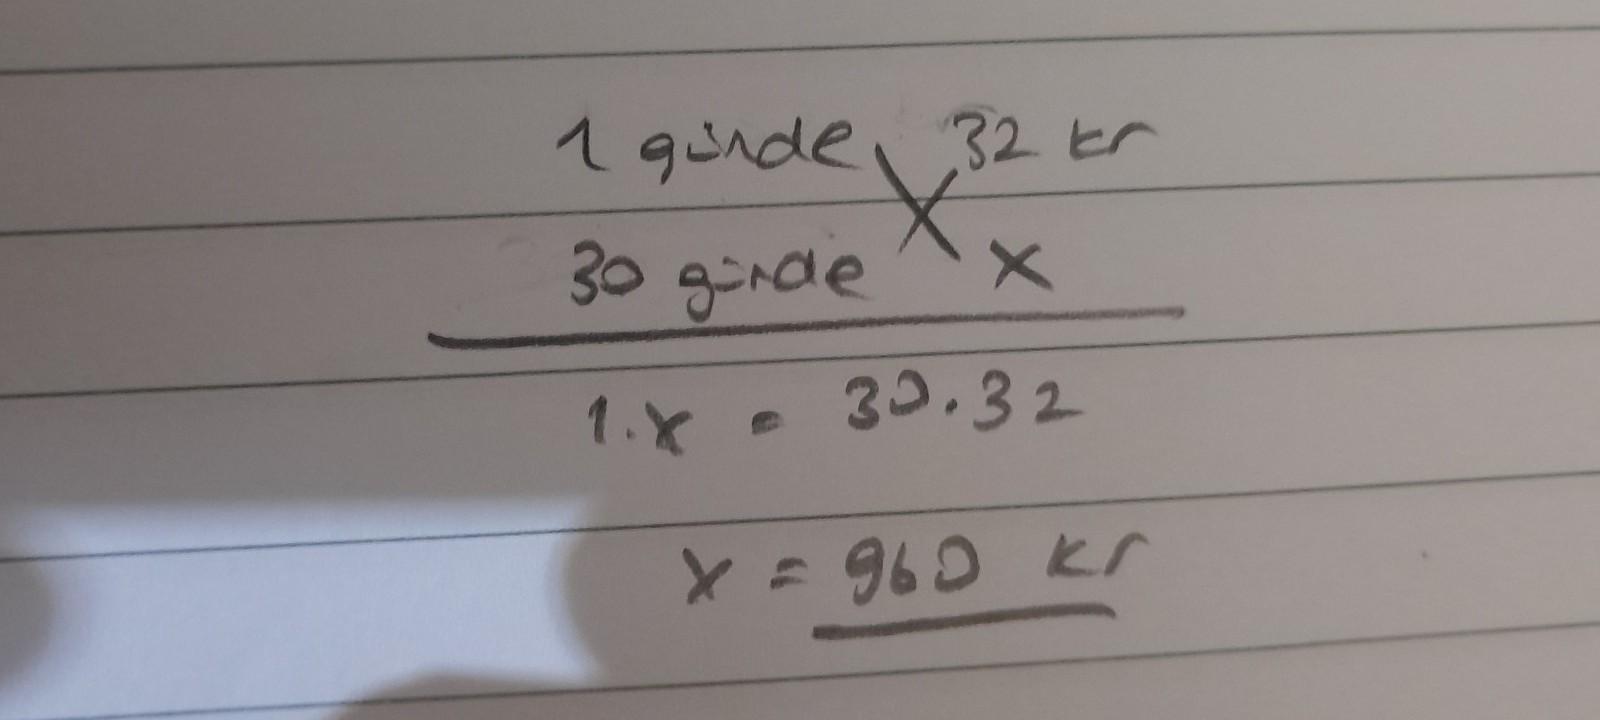 1 günde 32 kr
30 günde x
1.x = 30.32
x = 960 kr